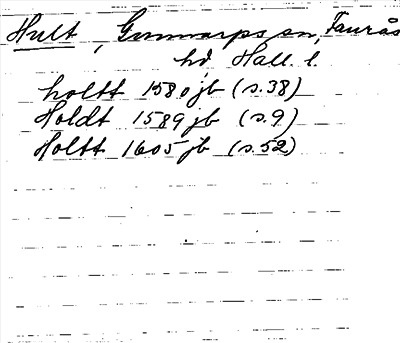 Hult, Gunnarps sn, Faurås
hd Hall. l.
holtt 1580 jb (s.38)
Holdt 1589 jb (s.9)
Holtt 1605 jb (s.52)